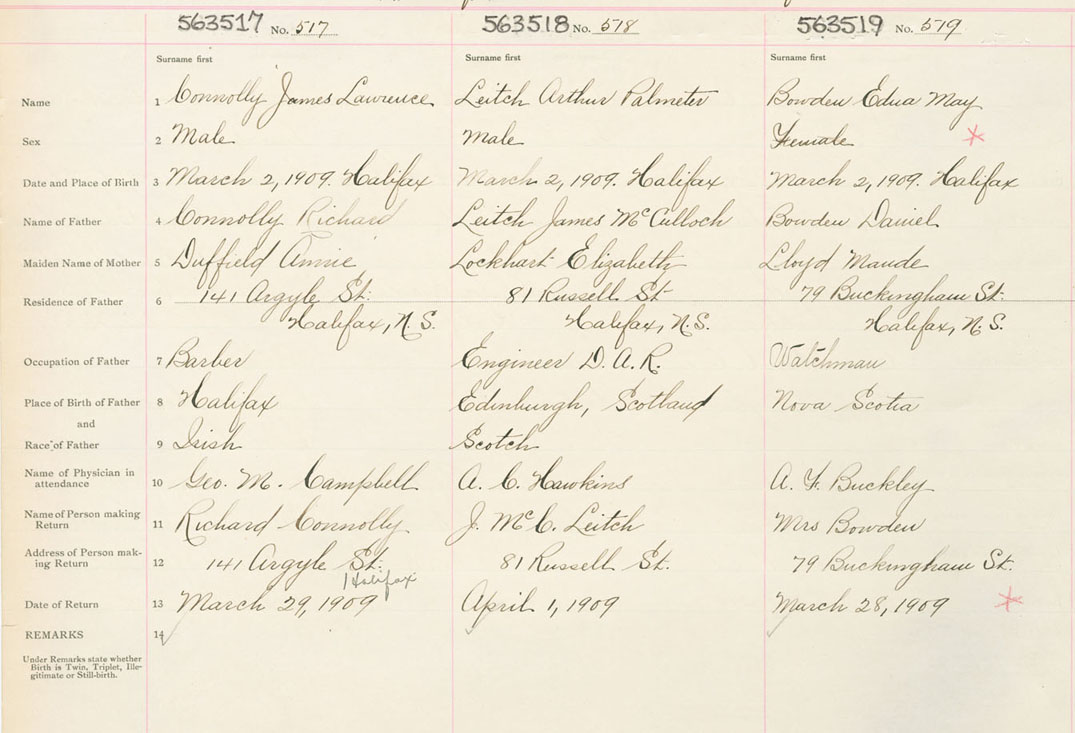 563517 No. 517 563518 No. 518 563519 No. 519
Surname first Surname first Surname first
Name 1 Connolly James Lawrence Leitch Arthur Palmeter Bowden Edna May
Sex 2 Male Male Female
Date and Place of Birth 3 March 2, 1909. Halifax March 2, 1909. Halifax March 2, 1909. Halifax
Name of Father 4 Connolly Richard Leitch James McCulloch Bowden Daniel
Maiden Name of Mother 5 Duffield Annie Lockhart Elizabeth Lloyd Maude
Residence of Father 6 141 Argyle St. 81 Russell St 79 Buckingham St.
Halifax, N.S. Halifax, N.S. Halifax, N.S.
Occupation of Father 7 Barber Engineer D.A.R. Watchman
Place of Birth of Father 8 Halifax Edinburgh, Scotland Nova Scotia
and
Race of Father 9 Irish Scotch
Name of Physician in
attendance 10 Geo. M. Campbell A. C. Hawkins A. F. Buckley
Name of Person making
Return 11 Richard Connolly J. McC. Leitch Mrs Bowden
Address of Person mak-
ing Return 12 141 Argyle St. 81 Russell St. 79 Buckingham St.
Halifax
Date of Return 13 March 29, 1909 April 1, 1909 March 28, 1909
REMARKS 14
Under Remarks state whether
Birth is Twin, Triplet, Ille-
gitimate or Still-birth.